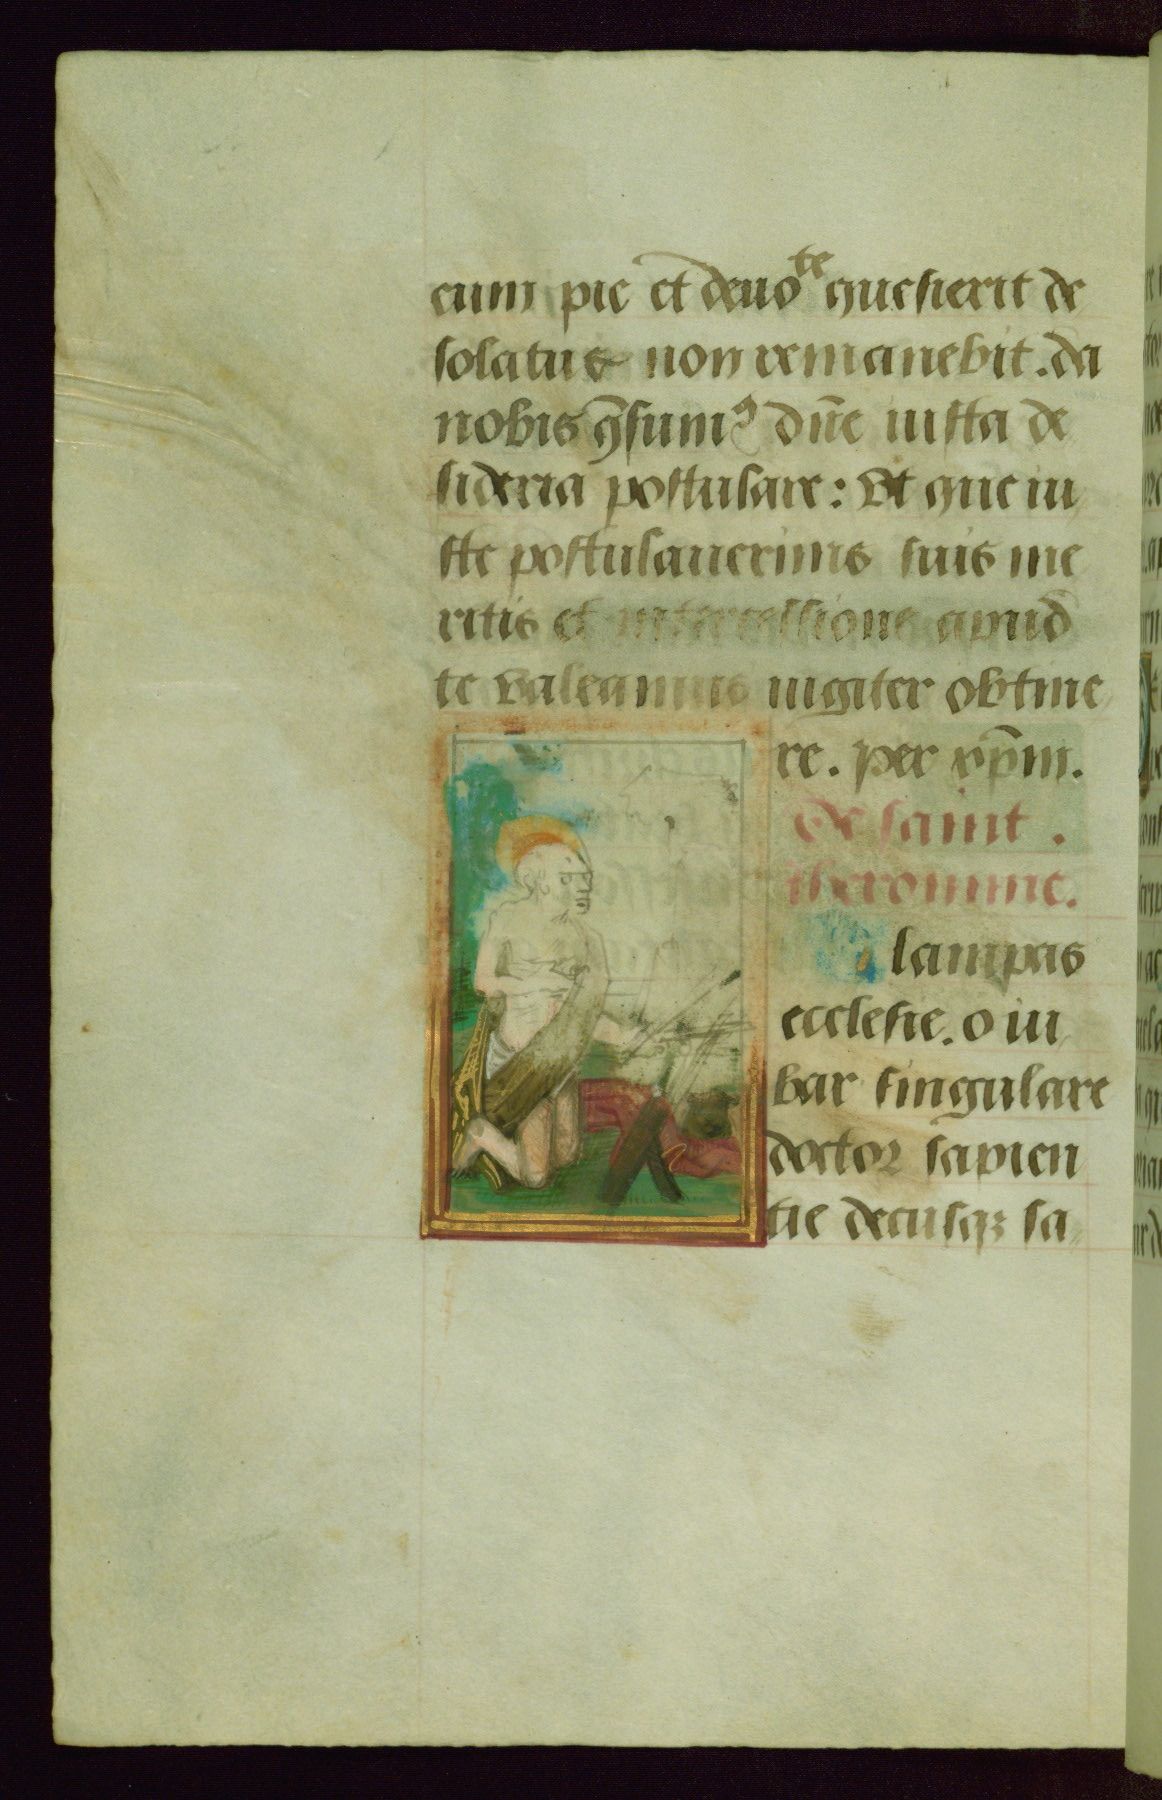 eum pie et deuote quesierit de
solatus non remanebit. da
nobis q̄sumꝰ dn̄e iusta de
sideria postulare: vt que iu
ste postulauerimus suis me
ritis et intercessione apud
te valeamus iugiter obtine
re. per xp̄m.
de saint.
iheromme.
lampas
ecclesie. o iu
bar singulare
doctor sapien
tie decusqꝫ sa